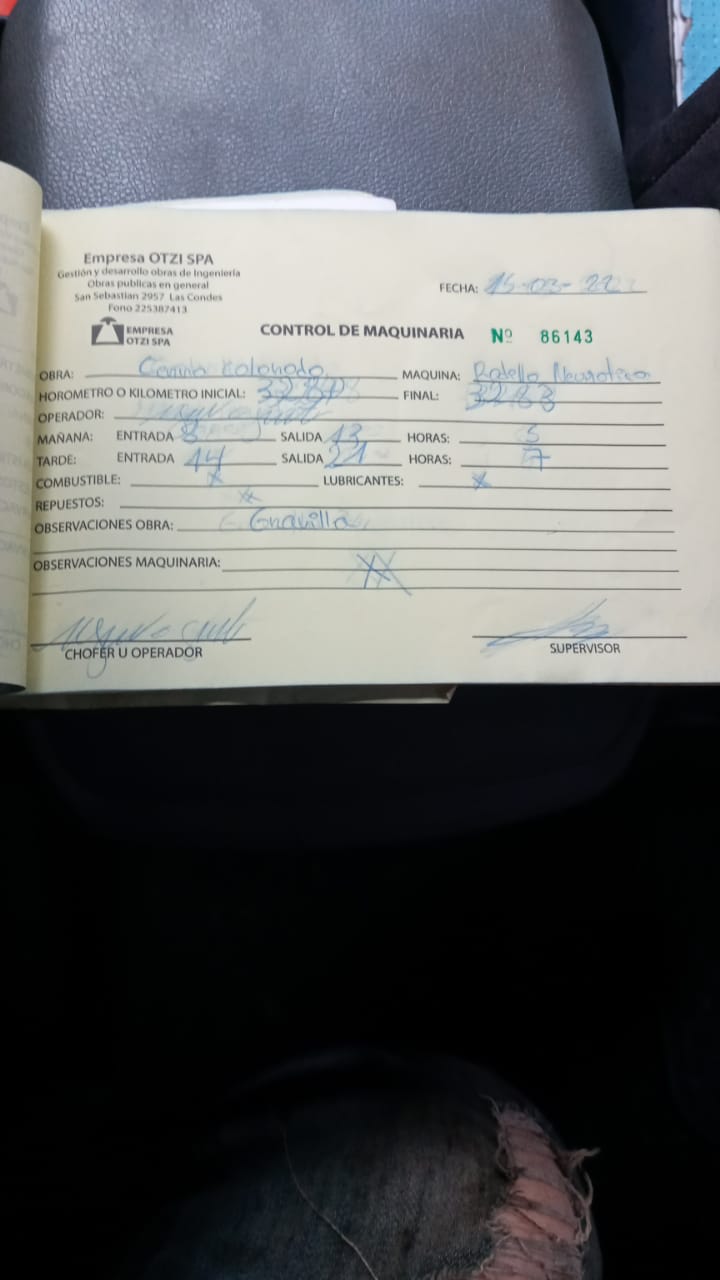 Empresa OTZI SPA
Gestión y desarrollo obras de Ingeniería
Obras publicas en general
San Sebastian 2957 Las Condes
Fono 225387413
EMPRESA
OTZI SPA
FECHA: 15-03-
CONTROL DE MAQUINARIA Nº 86143
OBRA: MAQUINA: Rodello
HOROMETRO O KILOMETRO INICIAL: FINAL: 3283
OPERADOR:
MAÑANA: ENTRADA 8 SALIDA 13 HORAS: 5
TARDE: ENTRADA 14 SALIDA 21 HORAS: 7
COMBUSTIBLE: X LUBRICANTES: X
REPUESTOS: X
OBSERVACIONES OBRA: Gravilla
OBSERVACIONES MAQUINARIA:
CHOFER U OPERADOR SUPERVISOR